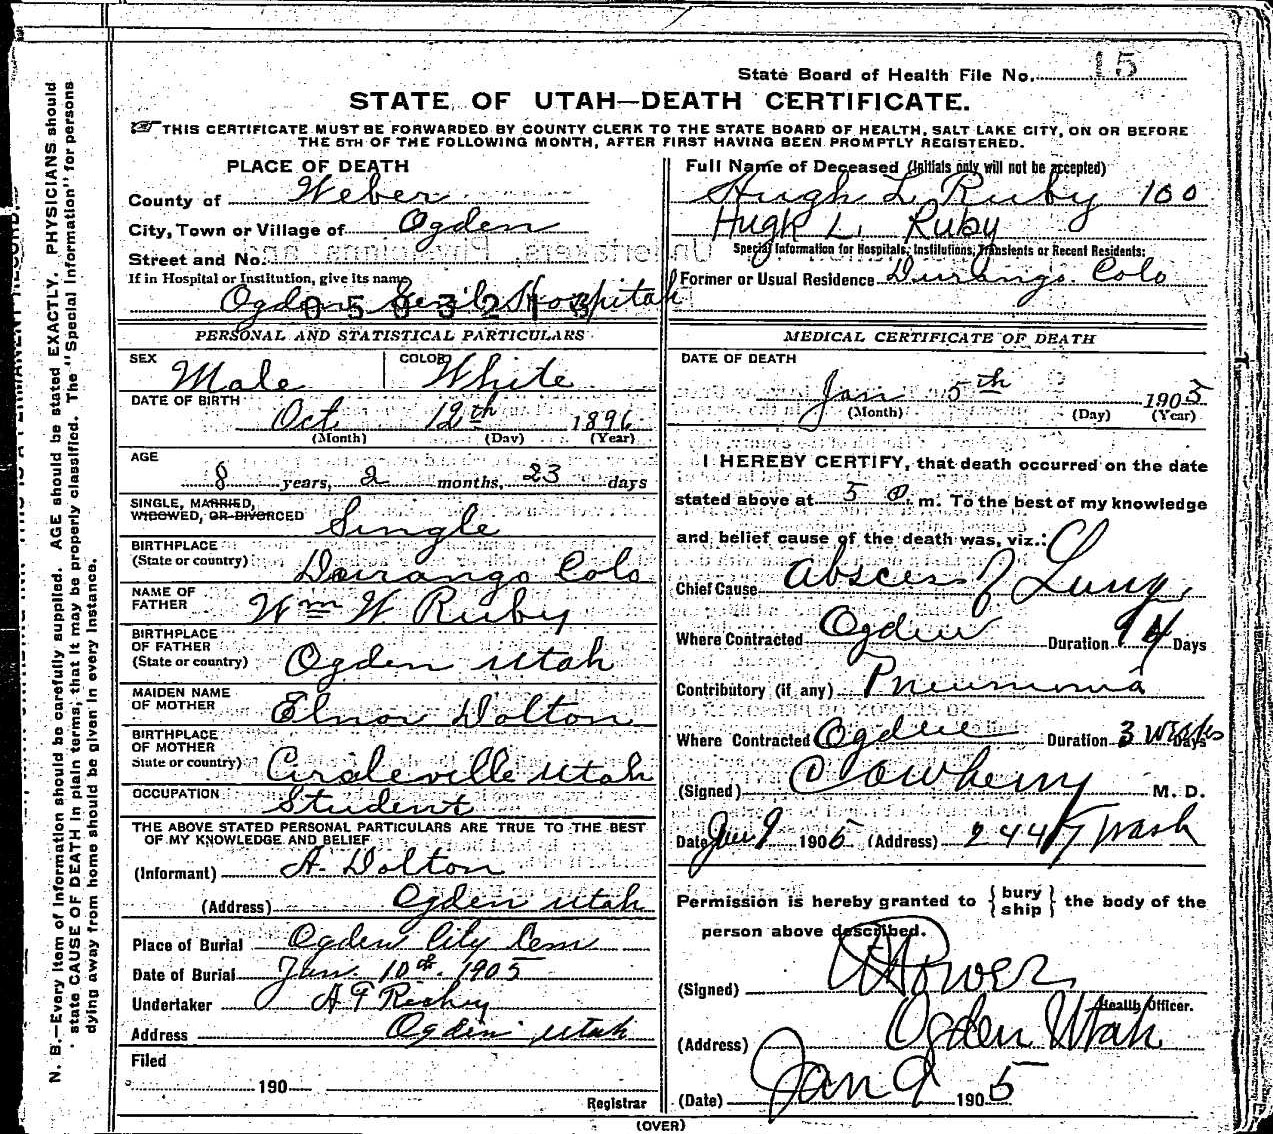 State Board of Health File No. 15
STATE OF UTAH—DEATH CERTIFICATE.
THIS CERTIFICATE MUST BE FORWARDED BY COUNTY CLERK TO THE STATE BOARD OF HEALTH, SALT LAKE CITY, ON OR BEFORE
THE 5TH OF THE FOLLOWING MONTH, AFTER FIRST HAVING BEEN PROMPTLY REGISTERED.
PLACE OF DEATH
County of Weber
City, Town or Village of Ogden
Street and No.
If in Hospital or Institution, give its name
Ogden Genl. Hospital
PERSONAL AND STATISTICAL PARTICULARS
SEX Male COLOR White
DATE OF BIRTH
Oct 12th 1896
(Month) (Day) (Year)
AGE
8 years, 2 months, 23 days
SINGLE, MARRIED,
WIDOWED, OR DIVORCED Single
BIRTHPLACE
(State or country) Durango Colo
NAME OF
FATHER Wm W. Ruby
BIRTHPLACE
OF FATHER
(State or country) Ogden Utah
MAIDEN NAME
OF MOTHER Elnor Dolton
BIRTHPLACE
OF MOTHER
State or country) Circleville Utah
OCCUPATION Student
THE ABOVE STATED PERSONAL PARTICULARS ARE TRUE TO THE BEST
OF MY KNOWLEDGE AND BELIEF
(Informant) A. Dolton
(Address) Ogden Utah
Place of Burial Ogden City Cem
Date of Burial Jan. 10th 1905
Undertaker A F Richey
Address Ogden Utah
Filed
190
Registrar
Full Name of Deceased (Initials only will not be accepted)
Hugh L. Ruby 100
Hugh L. Ruby
Special Information for Hospitals, Institutions, Transients or Recent Residents:
Former or Usual Residence Durango. Colo
MEDICAL CERTIFICATE OF DEATH
DATE OF DEATH
Jan 5th 1905
(Month) (Day) (Year)
I HEREBY CERTIFY, that death occurred on the date
stated above at 5 P. m. To the best of my knowledge
and belief cause of the death was, viz.:
Chief Cause Abscess of Lung
Where Contracted Ogden Duration 14 Days
Contributory (if any) Pneumonia
Where Contracted Ogden Duration 3 weeks Days
(Signed) M. D.
Date Jan 9 1905 (Address) 2447 Wash
Permission is hereby granted to { bury
ship } the body of the
person above described.
(Signed)
Health Officer.
(Address) Ogden Utah
(Date) Jan 9 1905
(OVER)
N. B.—Every item of information should be carefully supplied. AGE should be stated EXACTLY. PHYSICIANS should
state CAUSE OF DEATH in plain terms, that it may be properly classified. The "Special Information" for persons
dying away from home should be given in every instance.